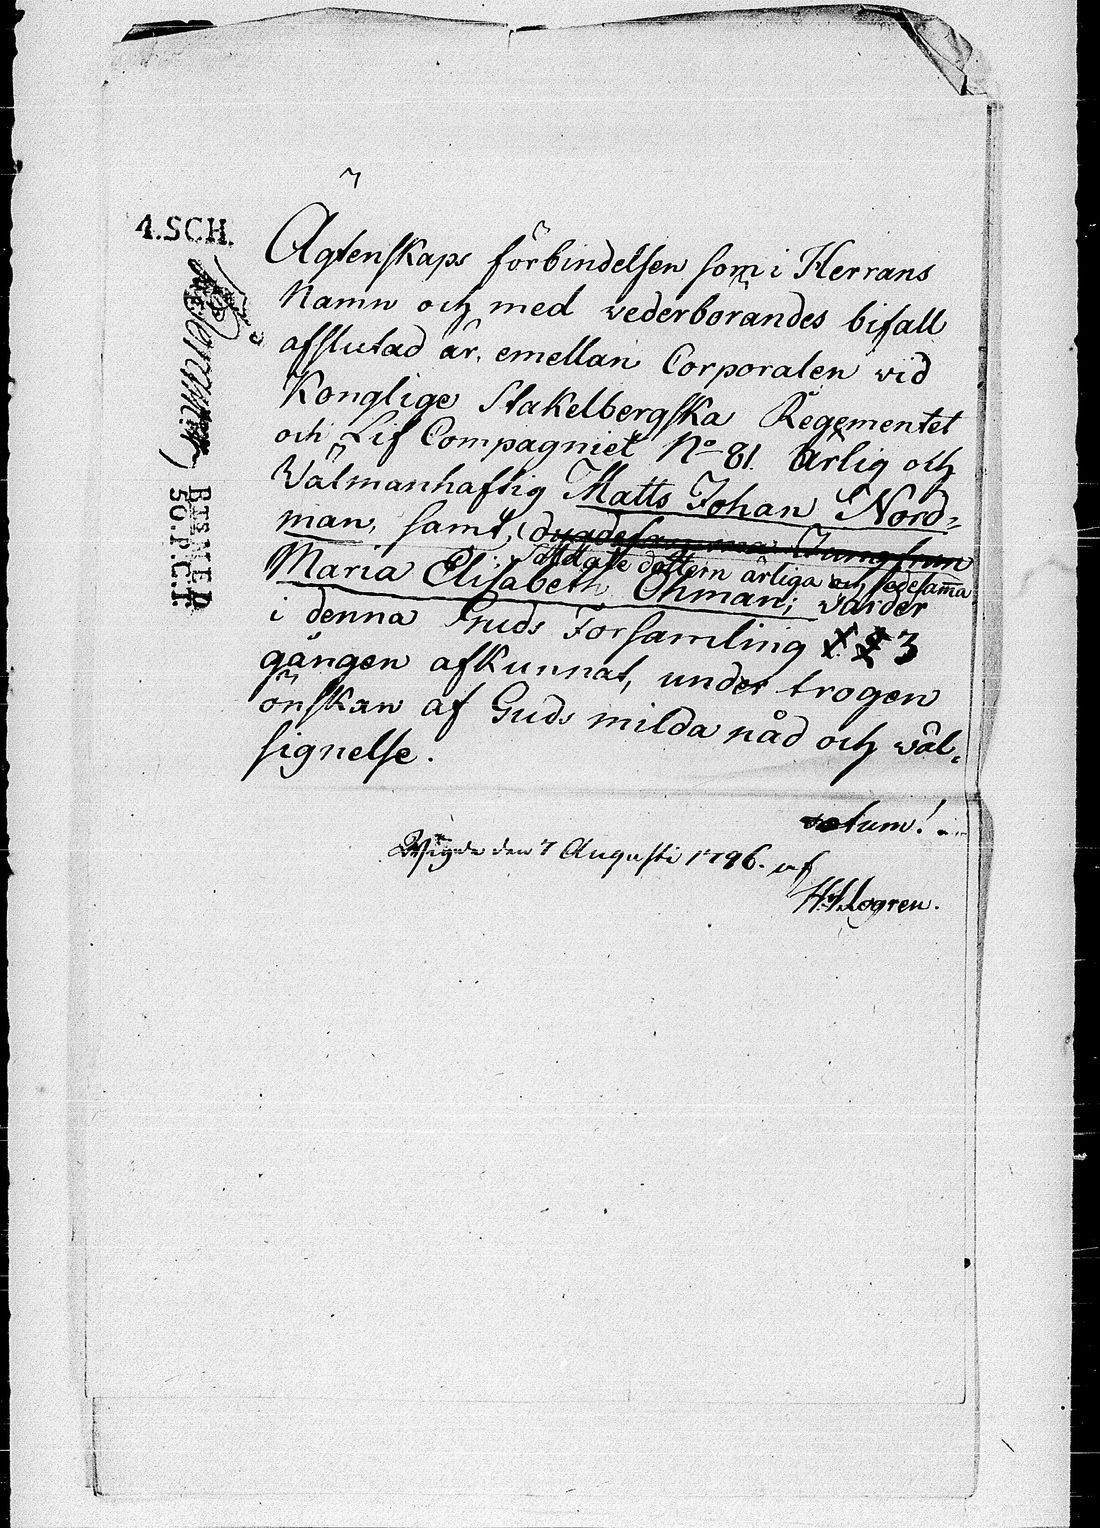 4.SCH.
BTSNER
50.P.C.T.
Ägtenskaps förbindelsen som i Herrans
Namn och med vederbörandes bifall
afslutad är, emellan Corporalen vid
Konglige Stakelbergska Regementet
och Lif Compagniet No 81. Ärlig och
Wälmanhaftig Matts Johan Nord=
man, samt, dygdesamma Jungfrun
dottern ärliga och sedesamma
Maria Elisabeth Öhman; varder
i denna Guds Församling 3
gången afkunnat, under trogen
önskan af Guds milda nåd och wäl=
signelse.
votum!
Wigde den 7 Augusti 1796. af